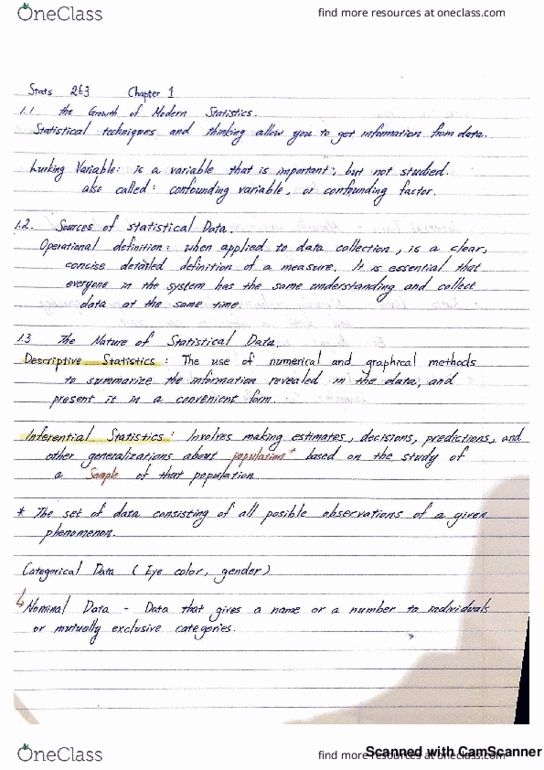 OneClass
find more resources at oneclass.com
Stats 263 Chapter 1
1.1 the Growth of Modern Statistics.
Statistical techniques and thinking allow you to get information from data.
Lurking Variable: is a variable that is important, but not studied.
also called: confounding variable, or confounding factor.
1.2. Sources of statistical Data.
Operational definition: when applied to data collection, is a clear,
concise detailed definition of a measure. It is essential that
everyone in the system has the same understanding and collect
data at the same time.
1.3 The Nature of Statistical Data.
Descriptive Statistics: The use of numerical and graphical methods
to summarize the information revealed in the data, and
present it in a convenient form.
Inferential Statistics: Involves making estimates, decisions, predictions, and
other generalizations about population* based on the study of
a Sample of that population
* The set of data consisting of all posible observations of a given
phenomenon.
Categorical Data (Eye color, gender)
↳ Nominal Data - Data that gives a name or a number to individuals
or mutually exclusive categories.
OneClass
find more resources at oneclass.com
Scanned with CamScanner